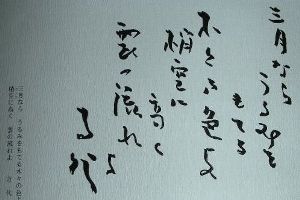 三月なら
うるみを
もてる
木々の色よ
梢空に
高く
雲の流れよ
三月なら うるみをもてる木々の色よ
梢空に 雲の流れよ